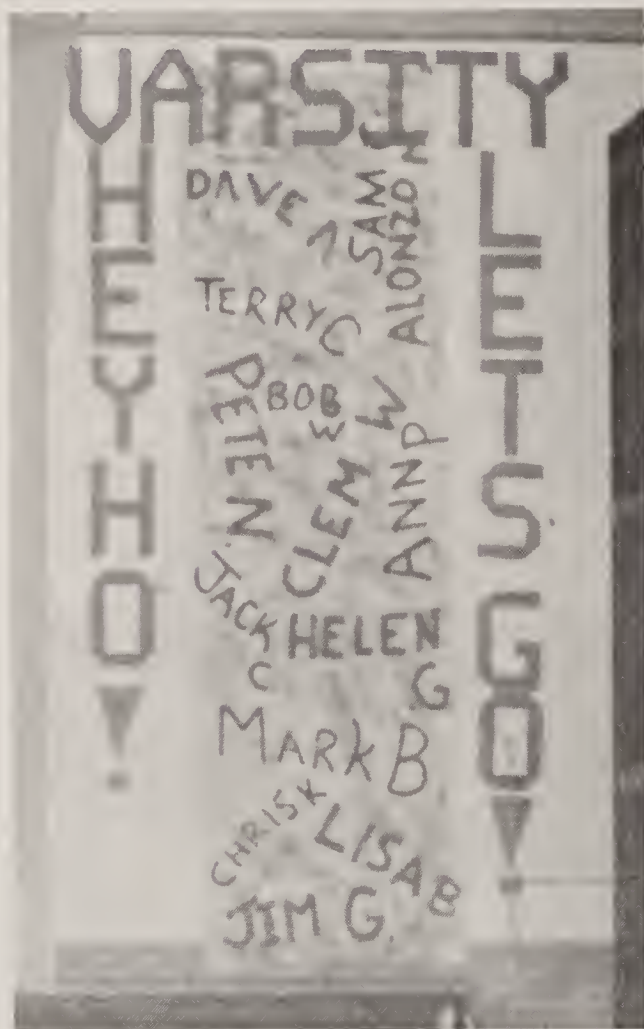 VARSITY
HEY HO!
DAVE
SAM
ALONZO N
TERRY C
PETE N.
BOB W
CLEM W
ANN P
JACK C
HELEN G
MARK B
CHRIS K
LISA B
JIM G.
LETS GO!